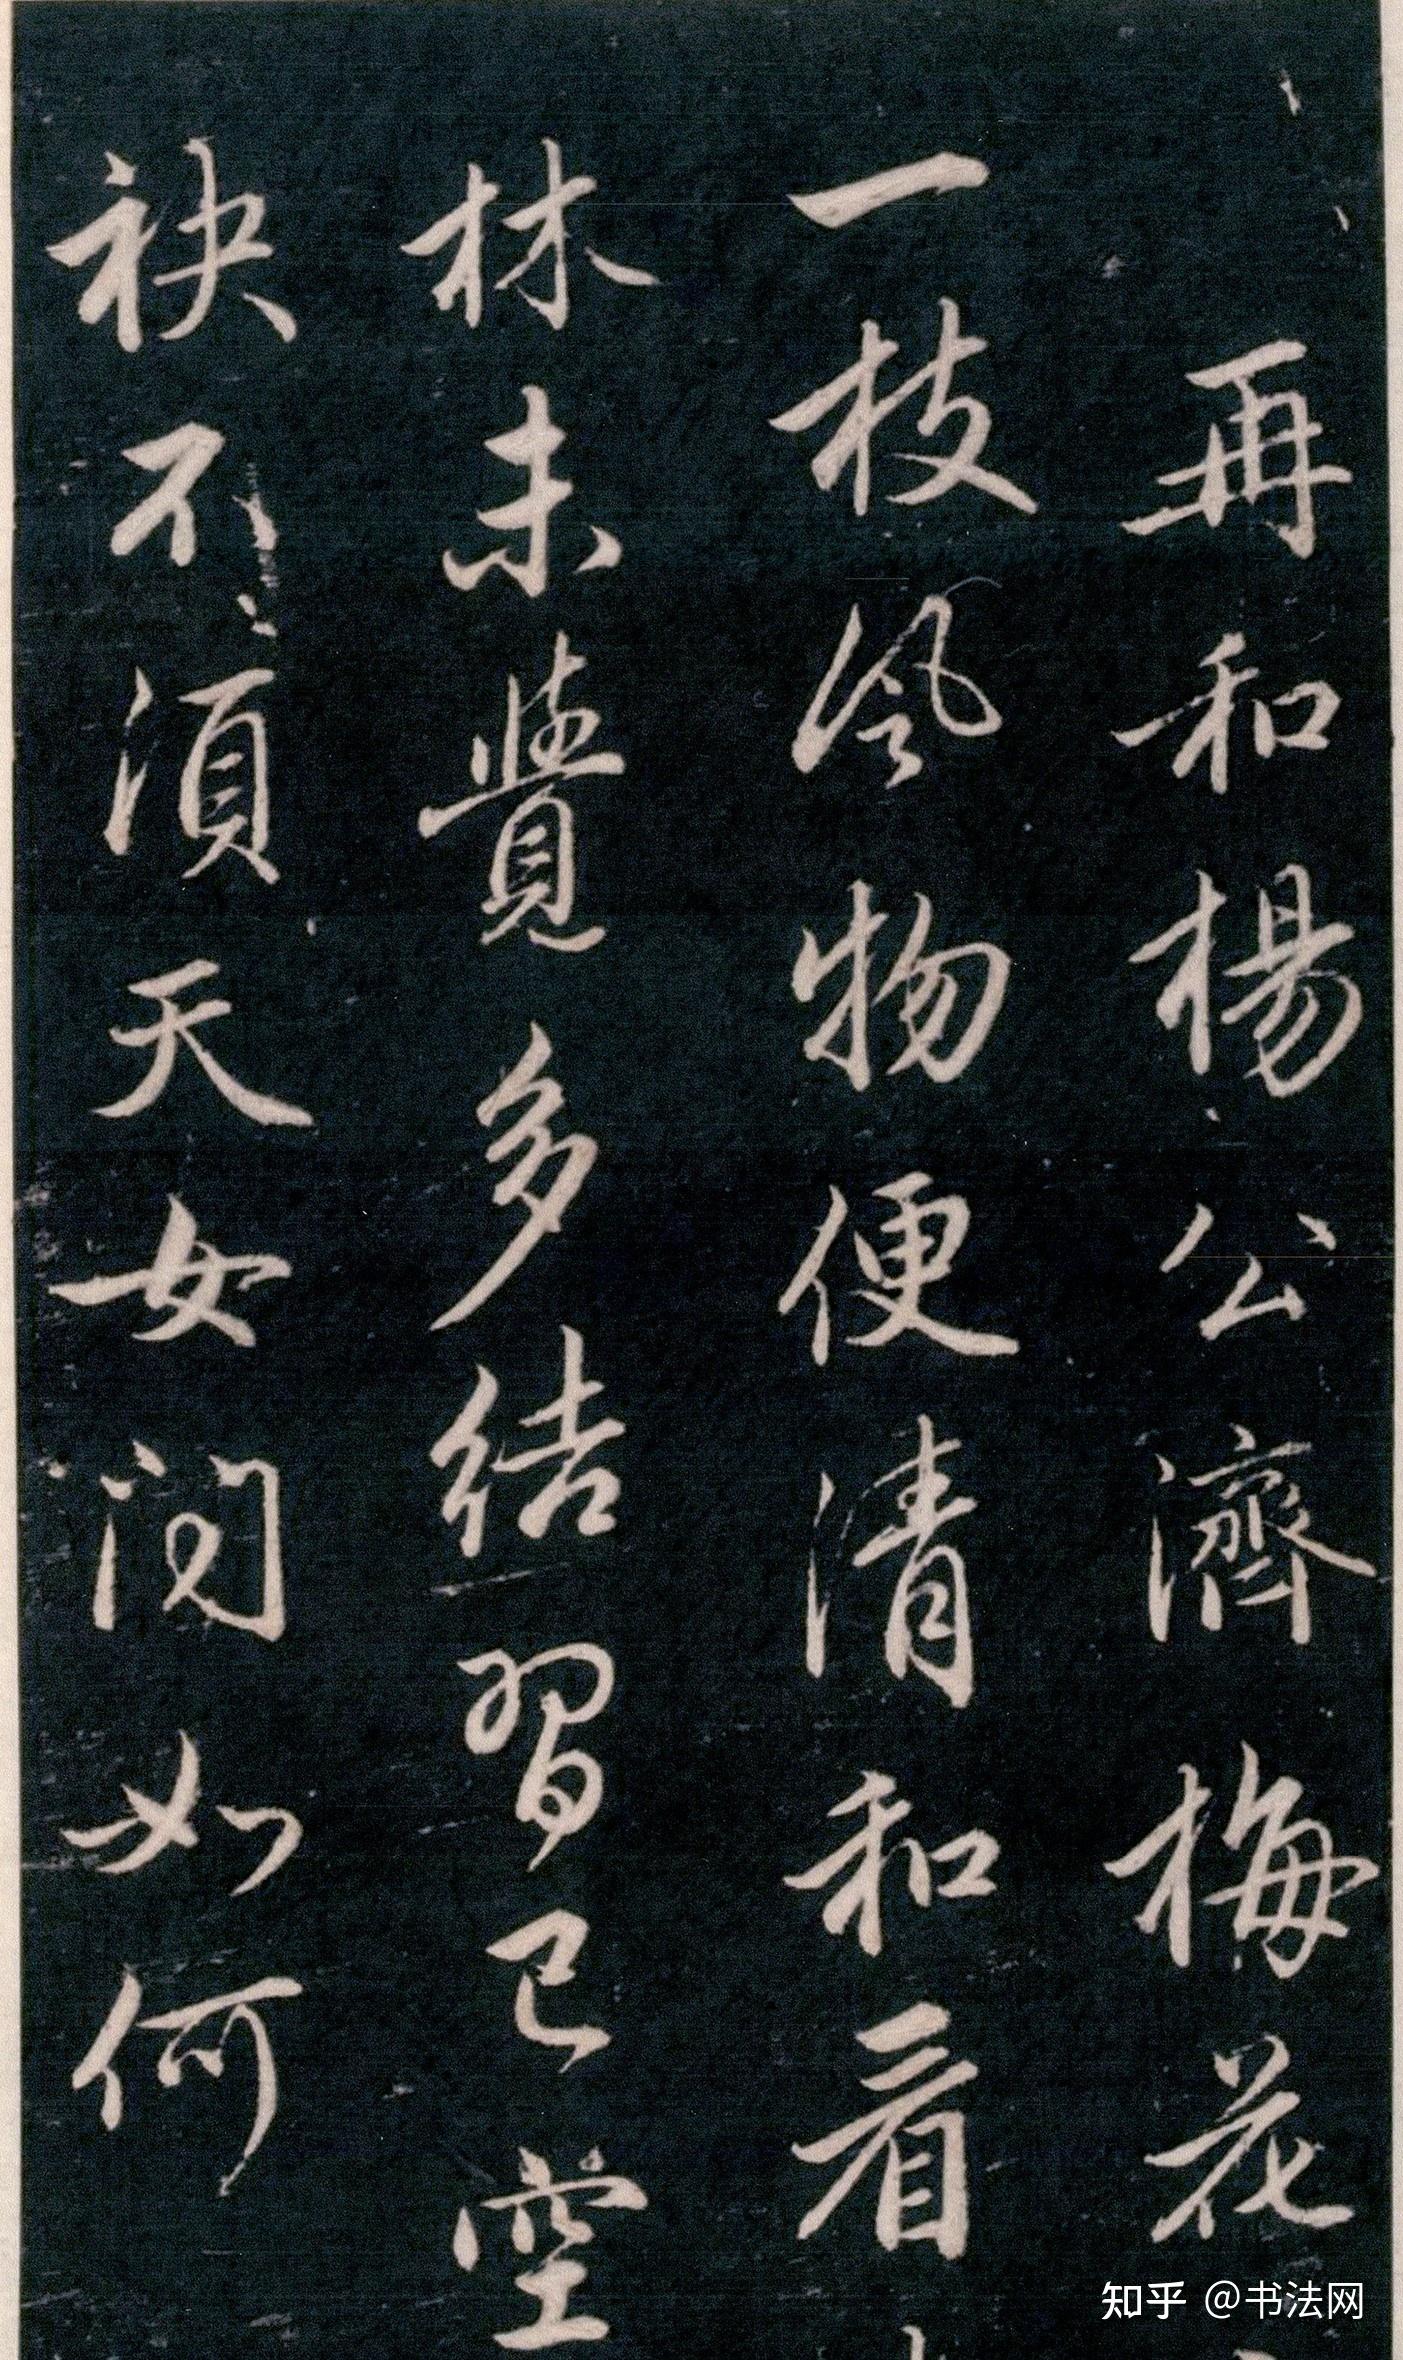 再和楊公濟梅花
一枝風物便清和看
林未覺多結習已空
袂不須天女問如何
知乎 @书法网